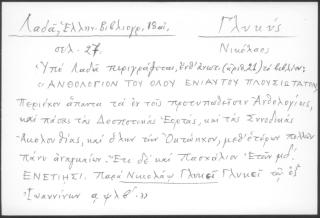 Λαδᾶ, Ἑλλην. Βιβλιογρ. 18 αἰ. Γλυκύς
σελ. 27. Νικόλαος
Ὑπὸ Λαδᾶ περιγράφεται, (ἀριθ. 21) τὸ βιβλίον:
«ΑΝΘΟΛΟΓΙΟΝ ΤΟΥ ΟΛΟΥ ΕΝΙΑΥΤΟΥ ΠΛΟΥΣΙΩΤΑΤΟΝ,
Περιέχον ἅπαντα τὰ ἐν τοῖς προτυπωθεῖσιν Ἀνθολογίοις,
καὶ πάσας τὰς Δεσποτικὰς Ἑορτὰς, καὶ τὰς Συνοδικὰς
Ἀκολουθίας, καὶ ὅλην τὴν Ὀκτώηχον, μεθ' ἑτέρων πολλῶν
πάνυ ἀναγκαίων. Ἔτι δὲ καὶ Πασχάλιον Ἐτῶν
ΕΝΕΤΙΗΣΙ. Παρὰ Νικολάῳ Γλυκεῖ Γλυκεῖ τῷ ἐξ
Ἰωαννίνων α ψ λ θ΄.»